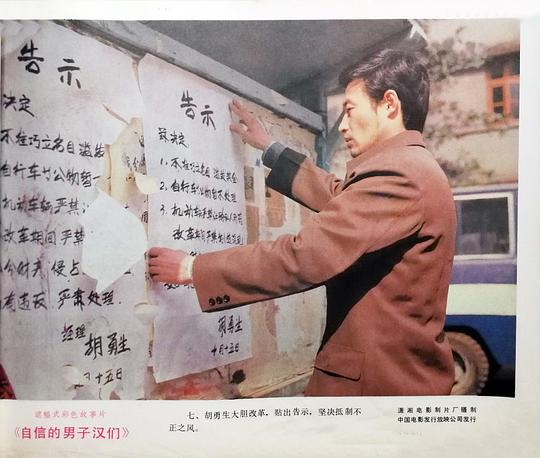 告示
决定
不准巧立名目滥发
自行车竹公物暂一
机动车辆严禁
改革期间严禁
公时弃,侵占
有违反,严肃处理.
经理 胡勇生
月十五日
告示
兹决定
1. 不准巧立名目 滥发奖金
2. 自行车公物暂不处理
3. 机动车辆严禁
改革期间严禁
胡勇生
十月十五日
遮幅式彩色故事片
《自信的男子汉们》
七、胡勇生大胆改革,贴出告示,坚决抵制不
正之风。
潇湘电影制片厂摄制
中国电影发行放映公司发行